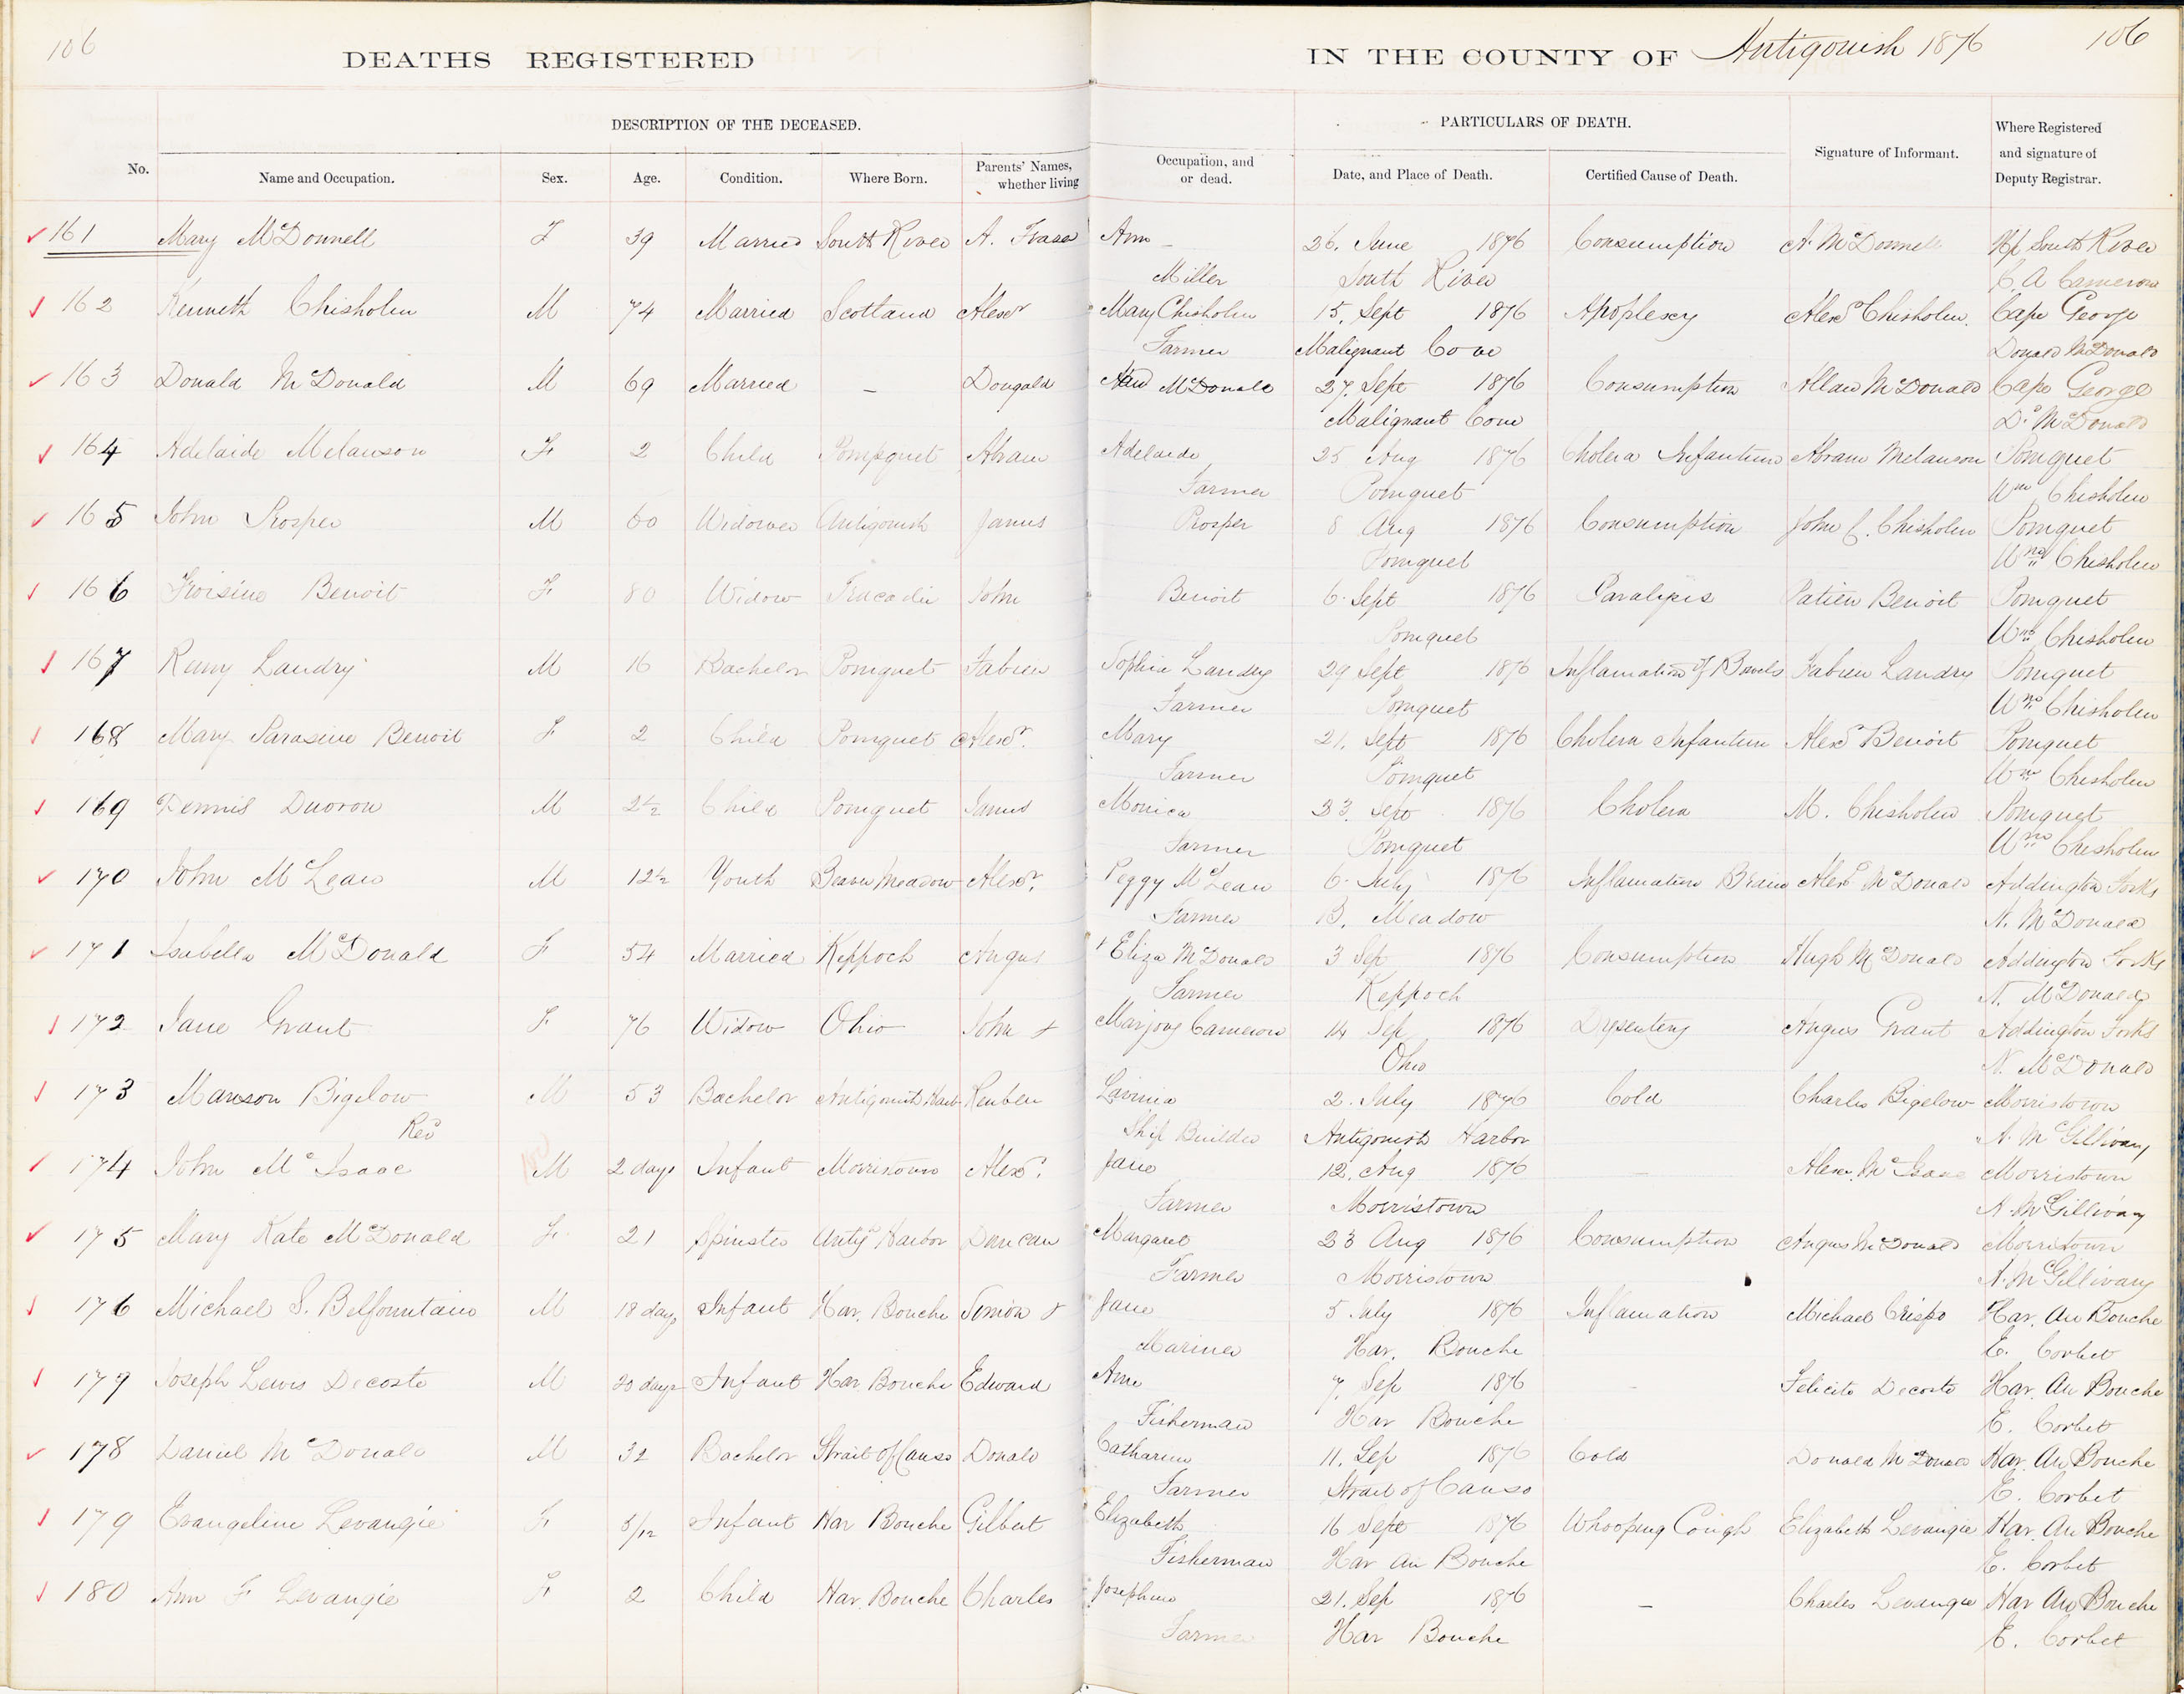 106
DEATHS REGISTERED IN THE COUNTY OF Antigonish 1876 106
DESCRIPTION OF THE DECEASED. PARTICULARS OF DEATH.
No. Name and Occupation. Sex. Age. Condition. Where Born. Parents' Names, whether living Occupation, and or dead. Date, and Place of Death. Certified Cause of Death. Signature of Informant. Where Registered and signature of Deputy Registrar.
161 Mary McDonnell F 39 Married South River A. Fraser Ann 26. June 1876 Consumption A. McDonnell Up South River
Miller South River C. A Cameron
162 Kenneth Chisholm M 74 Married Scotland Alexr Mary Chisholm 15. Sept 1876 Apoplexy Alexr Chisholm. Cape George
Farmer Malignant Cove Donald McDonald
163 Donald McDonald M 69 Married — Dougald McDonald 27. Sept 1876 Consumption Allan McDonald Cape George
Malignant Cove Do. McDonald
164 Adelaide Melanson F 2 Child Pompquet Abram Adelaide 25 Aug 1876 Cholera Infantum Abram Melanson Pomquet
Farmer Pomquet Wm Chisholm
165 John Prosper M 60 Widower Antigonish James Prosper 8 Aug 1876 Consumption John C. Chisholm Pomquet
Pomquet Wm Chisholm
166 Benoit F 80 Widow Tracadie John Benoit 6. Sept 1876 Paralysis Benoit Pomquet
Pomquet Wm Chisholm
167 Remy Landry M 16 Bachelor Pomquet Fabien Sophia Landry 29 Sept 1876 Inflamation of Bowels Fabien Landry Pomquet
Farmer Pomquet Wm Chisholm
168 Mary Parasine Benoit F 2 Child Pomquet Alexr. Mary 21. Sept 1876 Cholera Infantum Alexr Benoit Pomquet
Farmer Pomquet Wm Chisholm
169 Dennis Duoron M 2½ Child Pomquet James Monica 23. Sept 1876 Cholera M. Chisholm Pomquet
Farmer Pomquet Wm Chisholm
170 John McLean M 12½ Youth Beaver Meadow Alexr. Peggy McLean 6. July 1876 Inflamation Brain Alexr McDonald Addington Forks
Farmer B. Meadow N. McDonald
171 Isabella McDonald F 54 Married Keppoch Angus + Eliza McDonald 3 Sep 1876 Consumption Hugh McDonald Addington Forks
Farmer Keppoch N. McDonald
172 Jane Grant F 76 Widow Ohio John + Marjory Cameron 14 Sep 1876 Dysentery Angus Grant Addington Forks
Ohio N. McDonald
173 Manson Bigelow M 53 Bachelor Antigonish Harb Reuben Lavinia 2. July 1876 Cold Charles Bigelow Morristown
Red Ship Builder Antigonish Harbor A. McGillivray
174 John McIsaac M 2 days Infant Morristown Alexr. Jane 12. Aug 1876 — Alexr. McIsaac Morristown
Farmer Morristown A. McGillivray
175 Mary Kate McDonald F. 21 Spinster Antig Harbor Duncan Margaret 23 Aug 1876 Consumption Angus McDonald Morristown
Farmer Morristown A. McGillivray
176 Michael S. Belfountain M 18 days Infant Har. Bouche Simion + Jane 5 July 1876 Inflamation Michael Crispo Har. Au Bouche
Mariner Har. Bouche E. Corbet
179 Joseph Lewis Decoste M 20 days Infant Har Bouche Edward Ann 7. Sep 1876 — Felicite Decoste Har. Au Bouche
Fisherman Har Bouche E. Corbet
178 Daniel McDonald M 32 Bachelor Strait of Canso Donald Catharine 11. Sep 1876 Cold Donald McDonald Har. Au Bouche
Farmer Strait of Canso E. Corbet
179 Evangeline Levangie F Infant Har Bouche Gilbert Elizabeth 16 Sept 1876 Whooping Cough Elizabeth Levangie Har. Au Bouche
Fisherman Har Au Bouche E. Corbet
180 Ann F Levangie F 2 Child Har. Bouche Charles Josephine 21. Sep 1876 — Charles Levangie Har Au Bouche
Farmer Har Bouche E. Corbet